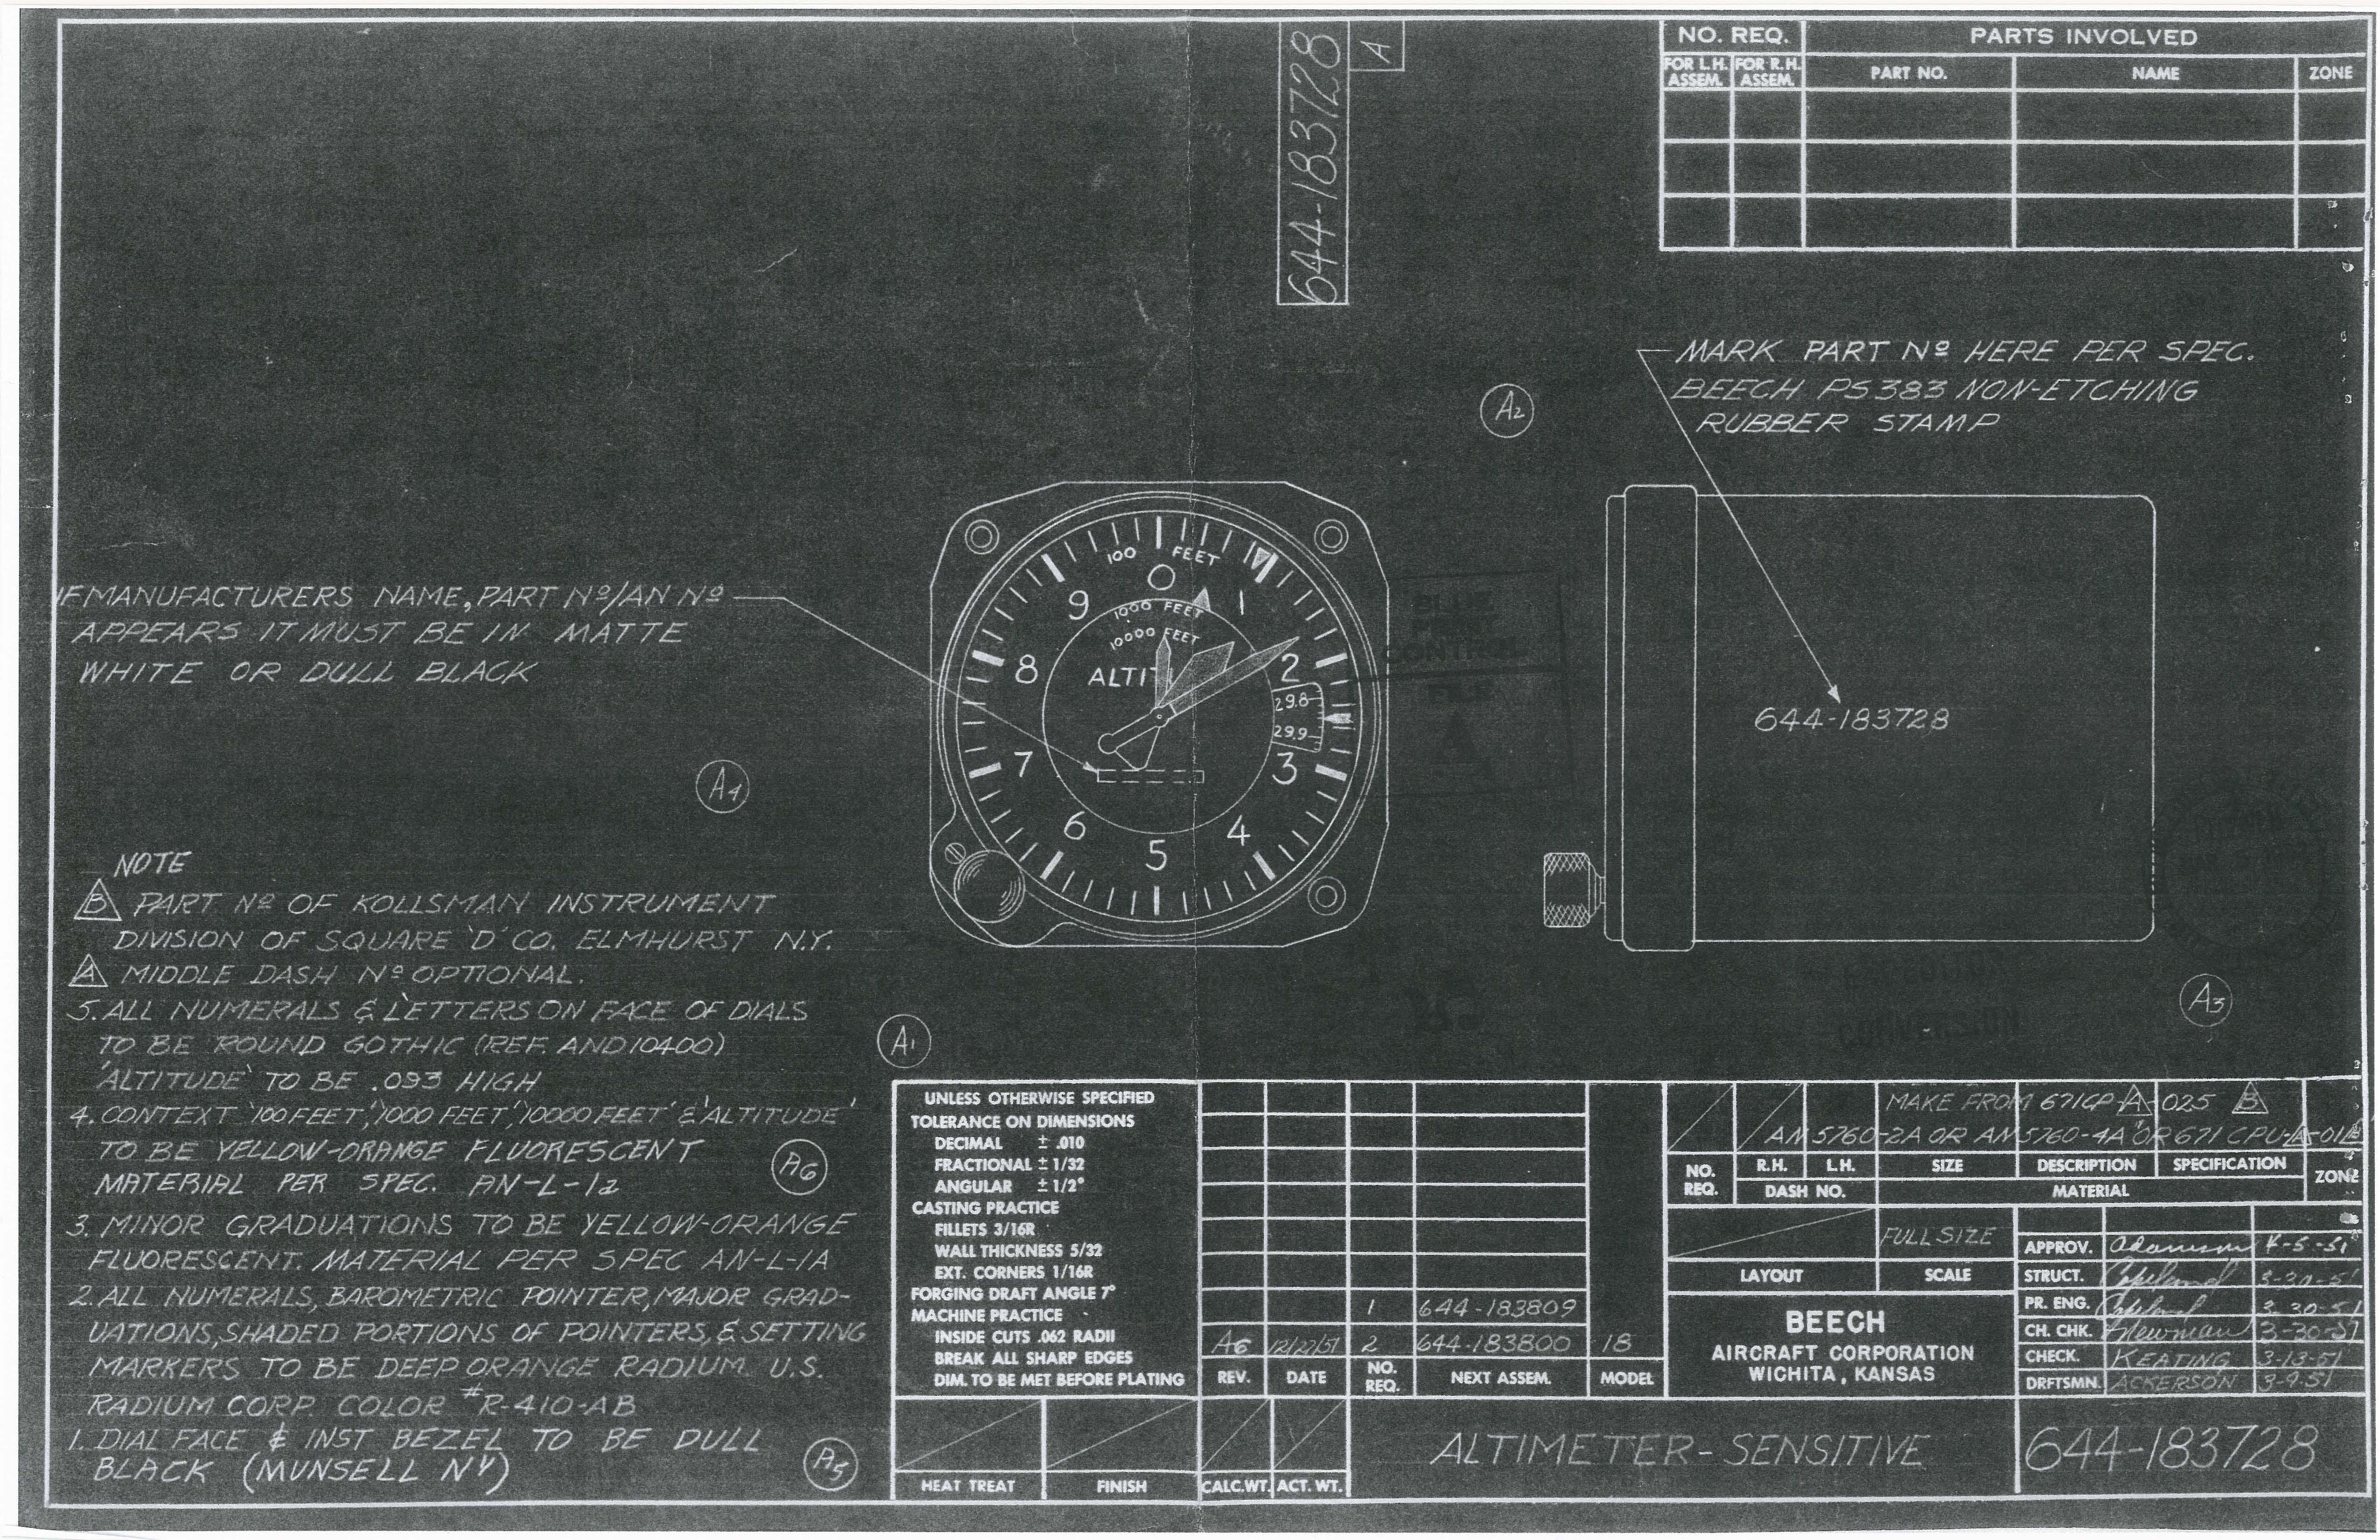 644-183728
A
NO. REQ.
PARTS INVOLVED
FOR L.H. ASSEM.
FOR R.H. ASSEM.
PART NO.
NAME
ZONE
MARK PART Nº HERE PER SPEC.
BEECH PS383 NON-ETCHING
RUBBER STAMP
A2
IF MANUFACTURERS NAME, PART Nº/AN Nº
APPEARS IT MUST BE IN MATTE
WHITE OR DULL BLACK
100 FEET
0
1
2
3
4
5
6
7
8
9
1000 FEET
10000 FEET
ALTIT
29.8
29.9
644-183728
A4
A3
NOTE
B PART Nº OF KOLLSMAN INSTRUMENT
DIVISION OF SQUARE 'D' CO. ELMHURST N.Y.
A MIDDLE DASH Nº OPTIONAL.
5. ALL NUMERALS & LETTERS ON FACE OF DIALS
TO BE ROUND GOTHIC (REF. AND10400)
'ALTITUDE' TO BE .093 HIGH
4. CONTEXT '100 FEET', '1000 FEET', '10000 FEET' & 'ALTITUDE'
TO BE YELLOW-ORANGE FLUORESCENT
MATERIAL PER SPEC. AN-L-1a
3. MINOR GRADUATIONS TO BE YELLOW-ORANGE
FLUORESCENT. MATERIAL PER SPEC AN-L-1A
2. ALL NUMERALS, BAROMETRIC POINTER, MAJOR GRAD-
UATIONS, SHADED PORTIONS OF POINTERS, & SETTING
MARKERS TO BE DEEP ORANGE RADIUM. U.S.
RADIUM CORP. COLOR #R-410-AB
1. DIAL FACE & INST BEZEL TO BE DULL
BLACK (MUNSELL
A1
A6
A5
UNLESS OTHERWISE SPECIFIED
TOLERANCE ON DIMENSIONS
DECIMAL ± .010
FRACTIONAL ± 1/32
ANGULAR ± 1/2°
CASTING PRACTICE
FILLETS 3/16R
WALL THICKNESS 5/32
EXT. CORNERS 1/16R
FORGING DRAFT ANGLE 7°
MACHINE PRACTICE
INSIDE CUTS .062 RADII
BREAK ALL SHARP EDGES
DIM. TO BE MET BEFORE PLATING
HEAT TREAT
FINISH
1 644-183809
A6 12/27/51 2 644-183800 18
REV.
DATE
NO. REQ.
NEXT ASSEM.
MODEL
CALC.WT.
ACT. WT.
MAKE FROM 671CP-A-025 B
AN 5760-2A OR AN 5760-4A OR 671 CPU-A-01
NO. REQ.
R.H.
L.H.
DASH NO.
SIZE
DESCRIPTION
SPECIFICATION
MATERIAL
ZONE
FULL SIZE
LAYOUT
SCALE
BEECH
AIRCRAFT CORPORATION
WICHITA, KANSAS
APPROV. Adamson 4-5-51
STRUCT. Copeland 3-30-51
PR. ENG. Copeland 3-30-51
CH. CHK. Newman 3-30-51
CHECK. KEATING 3-13-51
DRFTSMN. ACKERSON 3-9-51
ALTIMETER-SENSITIVE
644-183728